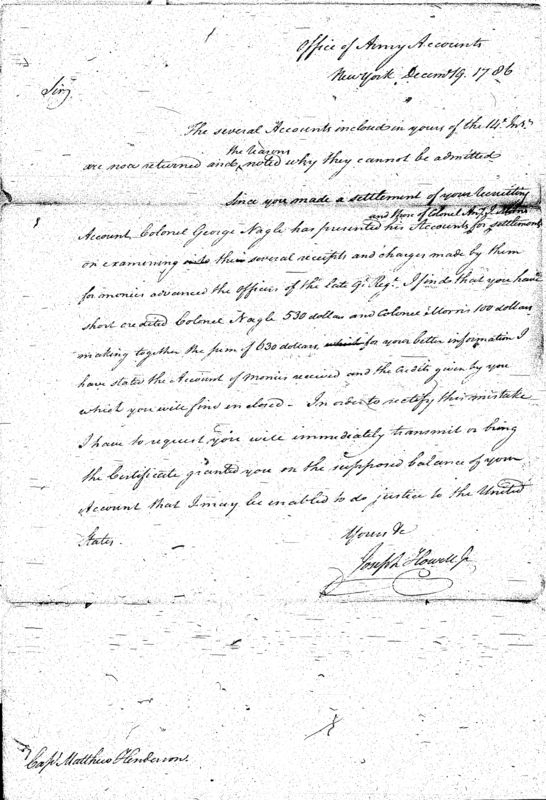 Office of Army Accounts
New York Decemr 19. 1786
Sir,
The several Accounts inclosed in yours of the 14th Inst.
the reasons
are now returned and noted why they cannot be admitted
Since you made a settlement of your Recruiting
and those of Colonel
Account, Colonel George Nagle has presented his Accounts for settlement
on examining their several receipts and charges made by them
for monies advanced the Officers of the late 9th Regt. I find that you have
short credited Colonel Nagle 530 dollars and Colonel Morris 100 dollars
making together the sum of 630 dollars which for your better information I
have stated the Account of monies received and the Credits given by you
which you will find enclosed - In order to rectify this mistake
I have to request you will immediately transmit or bring
the Certificate granted you on the supposed balance of your
Account that I may be enabled to do justice to the United
States.
Yours &c
Joseph Howell Jr
Capt Matthew Henderson.